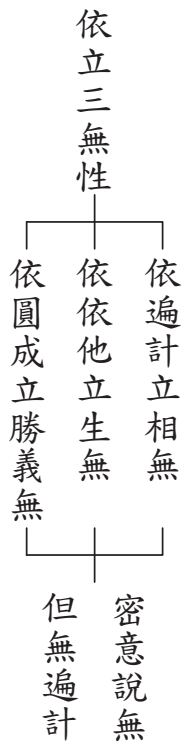 依立三無性
依遍計立相無
依依他立生無
依圓成立勝義無
密意說無
但無遍計